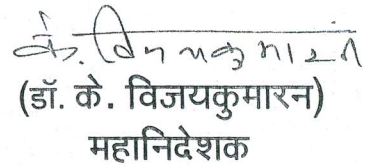 के. विजयकुमारन
(डॉ. के. विजयकुमारन)
महानिदेशक